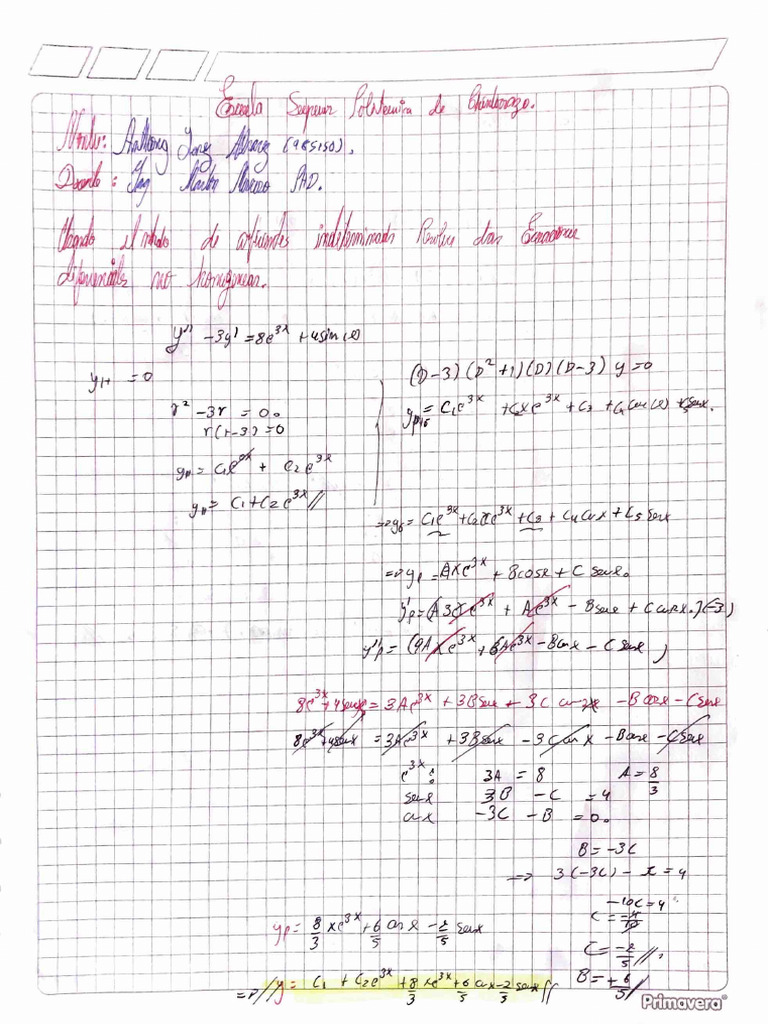 Escuela Superior Politecnica de Chimborazo.
Anthony (985150).
Docente : Ing PhD.
el de indeterminados Resolver
diferenciales no homogeneas.
y'' -3y' = 8e^3x + 4sin(x)
y_H = 0
r² -3r = 0.
r(r-3)=0
y_H = c1e^0x + c2e^3x
y_H = c1+c2e^3x //
(D-3)(D²+1)(D)(D-3) y =0
= c1e^3x + c2xe^3x + c3 + c4cos(x) + c5senx.
=> yG = c1e^3x + c2xe^3x + c3 + c4cosx + c5senx
=> yp = Axe^3x + Bcosx + C senx.
y'p = (A3xe^3x + Ae^3x - Bsenx + Ccosx.)(-3)
y''p = (9Axe^3x + 6Ae^3x - Bcosx - C senx)
8e^3x + 4senx = 3Ae^3x + 3Bsenx + 3C cosx - B cosx - Csenx
8e^3x + 4senx = 3Ae^3x + 3Bsenx - 3C cosx - Bcosx - Csenx
e^3x: 3A = 8 A = 8/3
senx 3B - C = 4
cosx -3C - B = 0.
B = -3C
=> 3(-3C) - x = 4
-10C = 4
C = -4/10
C = -2/5 //.
B = +6/5 //
yp = 8/3 xe^3x + 6/5 cosx - 2/5 senx
=> // y = c1 + c2e^3x + 8/3 xe^3x + 6/5 cosx - 2/5 senx //
Primavera®